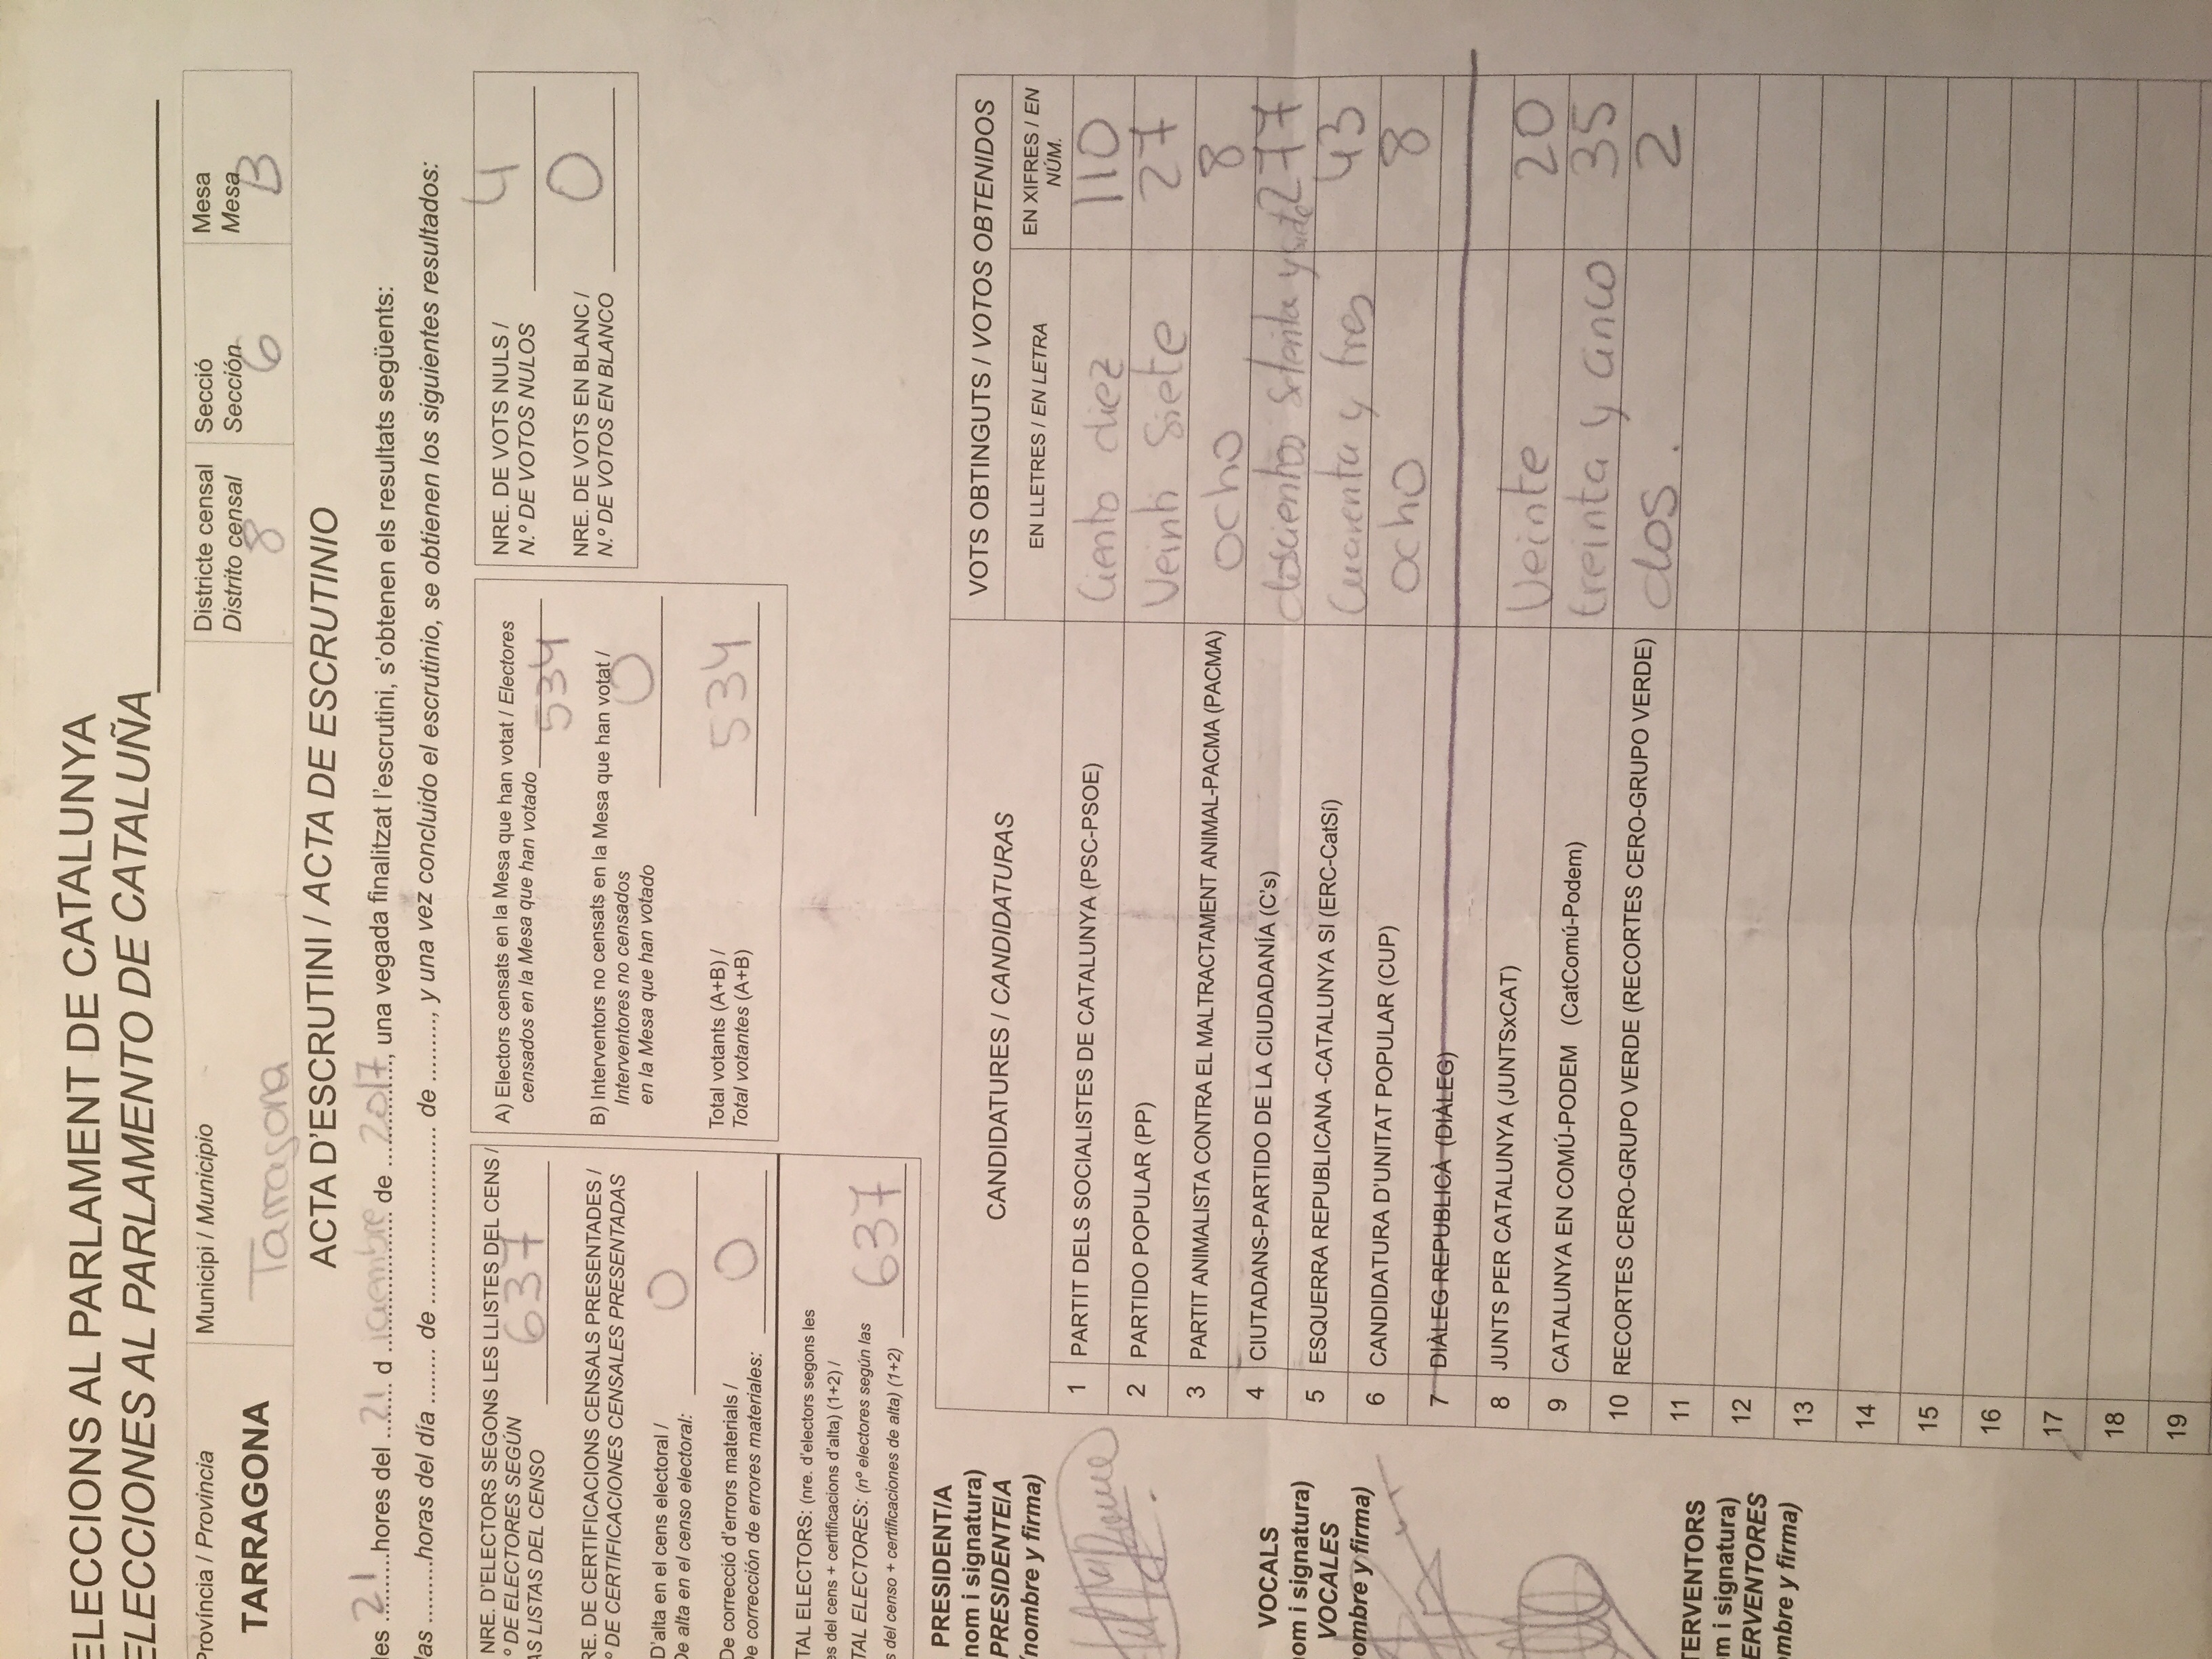 ELECCIONS AL PARLAMENT DE CATALUNYA
ELECCIONES AL PARLAMENTO DE CATALUÑA
Província / Provincia
TARRAGONA
Municipi / Municipio
Tarragona
Districte censal
Distrito censal
8
Secció
Sección
6
Mesa
Mesa
B
ACTA D'ESCRUTINI / ACTA DE ESCRUTINIO
les 21 hores del 21 d iciembre de 2017, una vegada finalitzat l'escrutini, s'obtenen els resultats següents:
las .........horas del día ........ de ......................... de ........., y una vez concluido el escrutinio, se obtienen los siguientes resultados:
NRE. D'ELECTORS SEGONS LES LLISTES DEL CENS /
º DE ELECTORES SEGÚN
AS LISTAS DEL CENSO
637
RE. DE CERTIFICACIONS CENSALS PRESENTADES /
º DE CERTIFICACIONES CENSALES PRESENTADAS
D'alta en el cens electoral /
De alta en el censo electoral:
0
De correcció d'errors materials /
De corrección de errores materiales:
0
TAL ELECTORS: (nre. d'electors segons les
es del cens + certificacions d'alta) (1+2) /
TAL ELECTORES: (nº electores según las
s del censo + certificaciones de alta) (1+2)
637
A) Electors censats en la Mesa que han votat / Electores
censados en la Mesa que han votado
534
B) Interventors no censats en la Mesa que han votat /
Interventores no censados
en la Mesa que han votado
0
Total votants (A+B) /
Total votantes (A+B)
534
NRE. DE VOTS NULS /
N.º DE VOTOS NULOS
4
NRE. DE VOTS EN BLANC /
N.º DE VOTOS EN BLANCO
0
PRESIDENT/A
(nom i signatura)
PRESIDENTE/A
(nombre y firma)
VOCALS
nom i signatura)
VOCALES
nombre y firma)
TERVENTORS
m i signatura)
ERVENTORES
mbre y firma)
CANDIDATURES / CANDIDATURAS
VOTS OBTINGUTS / VOTOS OBTENIDOS
EN LLETRES / EN LETRA
EN XIFRES / EN
NÚM.
1 PARTIT DELS SOCIALISTES DE CATALUNYA (PSC-PSOE) Ciento diez 110
2 PARTIDO POPULAR (PP) Veinti Siete 27
3 PARTIT ANIMALISTA CONTRA EL MALTRACTAMENT ANIMAL-PACMA (PACMA) ocho 8
4 CIUTADANS-PARTIDO DE LA CIUDADANÍA (C's) doscientos Setenta y siete 277
5 ESQUERRA REPUBLICANA -CATALUNYA SI (ERC-CatSí) Cuarenta y tres 43
6 CANDIDATURA D'UNITAT POPULAR (CUP) ocho 8
7 DIÀLEG REPUBLICÀ (DIÀLEG)
8 JUNTS PER CATALUNYA (JUNTSxCAT) Veinte 20
9 CATALUNYA EN COMÚ-PODEM (CatComú-Podem) treinta y cinco 35
10 RECORTES CERO-GRUPO VERDE (RECORTES CERO-GRUPO VERDE) dos. 2
11
12
13
14
15
16
17
18
19